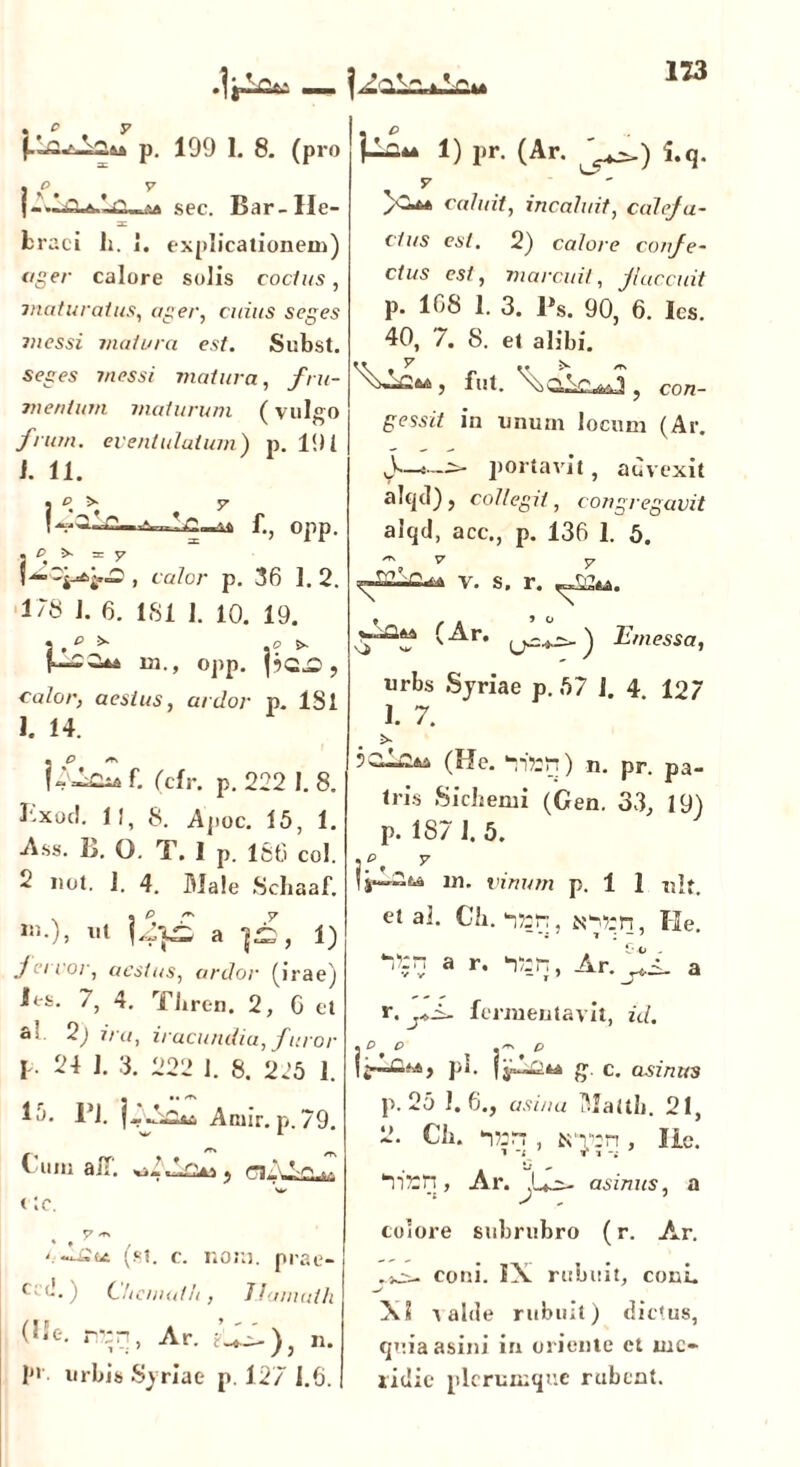 ܚܡܪܐ. — ܚܡܝܡܘܬܐ 173
ܚܡܝܡܐ p. 199 l. 8. (pro
sec. Bar-He-
braei h. l. explicationem)
ager calore solis coctus,
maturatus, ager, cuius seges
messi matura est. Subst.
seges messi matura, fru-
mentum maturum (vulgo
frum. eventulatum) p. 191
l. 11.
ܚܡܝܡܘܬܐ f., opp.
ܩܪܝܪܘܬܐ, calor p. 36 l. 2.
178 l. 6. 181 l. 10. 19.
ܚܘܡܐ m., opp. ܩܘܪܐ,
calor, aestus, ardor p. 181
l. 14.
ܚܡܬܐ f. (cfr. p. 222 l. 8.
Exod. 11, 8. Apoc. 15, 1.
Ass. B. O. T. I p. 186 col.
2 not. l. 4. Male Schaaf.
m.), ut a 1)
fervor, aestus, ardor (irae)
Ies. 7, 4. Thren. 2, 6 et
al. 2) ira, iracundia, furor
p. 24 l. 3. 222 l. 8. 225 l.
15. Pl. Amir. p. 79.
Cum aff. ܚܡܬܝ, ܚܡܬܗ
etc.
ܚܡܬ (st. c. nom. prae-
ced.) Chemath, Hamath
(He. חמת, Ar. حماة), n.
pr. urbis Syriae p. 127 l. 6.
1) pr. (Ar. ) i. q.
ܚܡ caluit, incaluit, calefa-
ctus est. 2) calore confe-
ctus est, marcuit, flaccuit
p. 168 l. 3. Ps. 90, 6. Ies.
40, 7. 8. et alibi.
ܚܡܠ, fut. ܢܚܡܘܠ, con-
gessit in unum locum (Ar.
حمل portavit, advexit
alqd), collegit, congregavit
alqd, acc., p. 136 l. 5.
v. s. r.
ܚܡܨ (Ar. حمص) Emessa,
urbs Syriae p. 57 l. 4. 127
l. 7.
ܚܡܘܪ (He. חמור) n. pr. pa-
tris Sichemi (Gen. 33, 19)
p. 187 l. 5.
ܚܡܪܐ m. vinum p. 1 l ult.
et al. Ch. חמר, חמרא, He.
חמר a r. חמר, Ar. خمر a
r. خمر fermentavit, id.
ܚܡܪܐ, pl. ܚܡܪܐ g. c. asinus
p. 25 l. 6., asina Matth. 21,
2. Ch. חמר, חמרא, He.
חמור, Ar. حمار asinus, a
colore subrubro (r. Ar.
حمر coni. IX rubuit, coni.
XI valde rubuit) dictus,
quia asini in oriente et me-
ridie plerumque rubent.